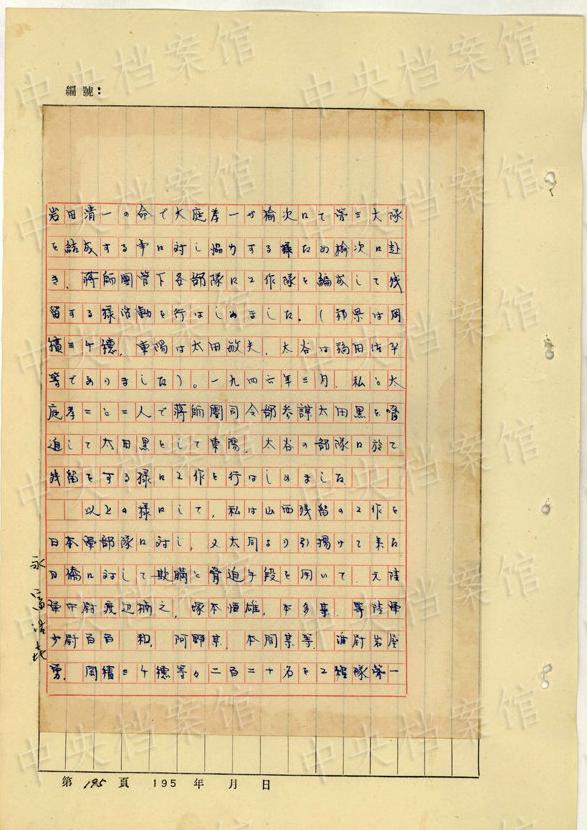 中央档案馆
編號:
岩田清一の命で大庭孝一が榆次にて第三大隊
を結成する事に対し協力する様ため榆次に赴
き、蒋師團管下各部隊に工作隊を編成して残
留する様活動を行はしめました。(祁県は岡
績三千穂、東陽は太田敏夫、太谷は
等でありました)。一九四六年三月、私と大
庭孝一と二人で蒋師團司令部参謀太田黒を脅
迫して太田黒をして東陽、太谷の部隊に於て
残留をする様に工作を行はしめました
以上の様にして、私は山西残留の工作を
日本軍部隊に対し、又大同より引揚げて来た
日僑に対して欺瞞と脅迫手段を用いて、元陸
軍中尉渡辺 之、塚本恒雄、本多某、等陸軍
少尉百百 和、阿野某、本間某等、 尉岩屋
勇、岡績三千穂等々二百二十名を工程隊第一
永富浩㐂
第 195 頁 195 年 月 日